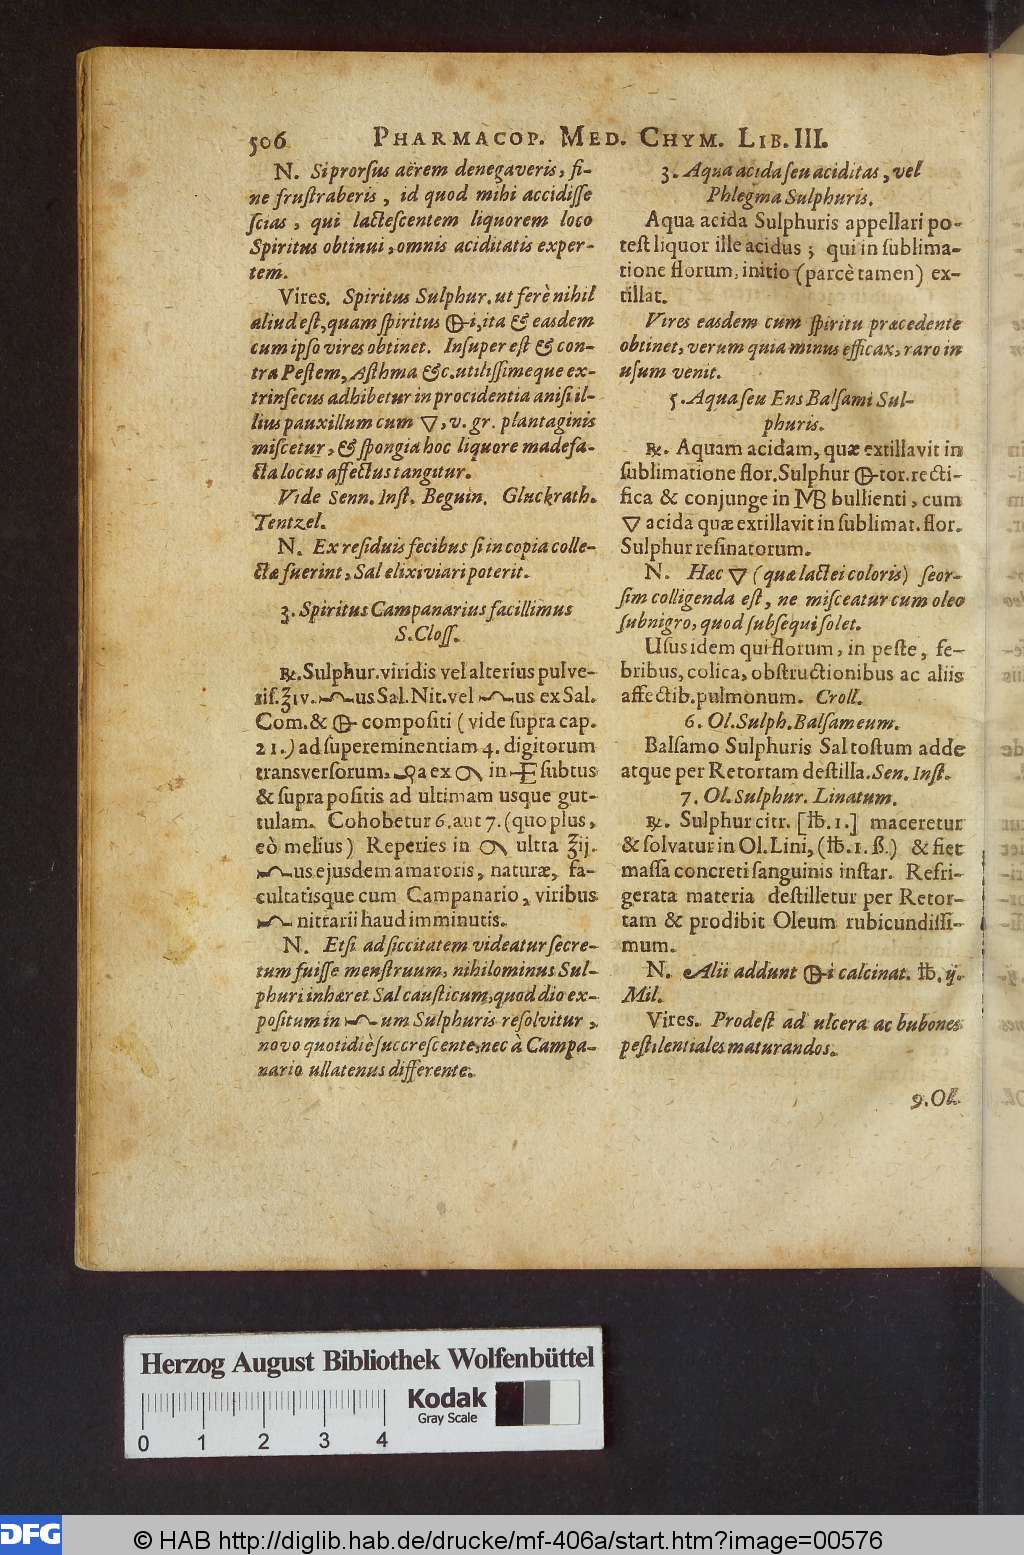 506 PHARMACOP. MED. CHYM. LIB. III.
N. Si prorſus aërem denegaveris, fi-
ne fruſtraberis, id quod mihi accidiſſe
ſcias, qui lacteſcentem liquorem loco
Spiritus obtinui, omnis aciditatis exper-
tem.
Vires. Spiritus Sulphur. ut ferè nihil
aliud eſt, quam ſpiritus 🜖i, ita & easdem
cum ipſo vires obtinet. Inſuper eſt & con-
tra Peſtem, Aſthma &c. utiliſſimeque ex-
trinſecus adhibetur in procidentia ani ſi il-
lius pauxillum cum ▽, v. gr. plantaginis
miſcetur, & ſpongia hoc liquore madefa-
cta locus affectus tangitur.
Vide Senn. Inſt. Beguin. Gluckrath.
Tentzel.
N. Ex reſiduis fecibus ſi in copia colle-
ctæ fuerint, Sal elixiviari poterit.
3. Spiritus Campanarius facillimus
S. Cloſſ.
℞. Sulphur. viridis vel alterius pulve-
riſ. ℥iv. us Sal. Nit. vel us ex Sal.
Com. & 🜖 compoſiti (vide ſupra cap.
21.) ad ſupereminentiam 4. digitorum
transverſorum, a ex in E ſubtus
& ſupra poſitis ad ultimam usque gut-
tulam. Cohobetur 6. aut 7. (quo plus,
eò melius) Reperies in ultra ℥ij.
us ejusdem amaroris, naturæ, fa-
cultatisque cum Campanario, viribus
nitrarii haud imminutis.
N. Etſi ad ſiccitatem videatur ſecre-
tum fuiſſe menſtruum, nihilominus Sul-
phuri inhæret Sal cauſticum, quod dio ex-
poſitum in um Sulphuris reſolvitur,
novo quotidiè ſuccreſcente, nec à Campa-
nario ullatenus differente.
3. Aqua acida ſeu aciditas, vel
Phlegma Sulphuris.
Aqua acida Sulphuris appellari po-
teſt liquor ille acidus; qui in ſublima-
tione florum, initio (parcè tamen) ex-
tillat.
Vires easdem cum ſpiritu præcedente
obtinet, verum quia minus efficax, raro in
uſum venit.
5. Aqua ſeu Ens Balſami Sul-
phuris.
℞. Aquam acidam, quæ extillavit in
ſublimatione flor. Sulphur 🜖tor. recti-
fica & conjunge in MB bullienti, cum
▽ acida quæ extillavit in ſublimat. flor.
Sulphur reſinatorum.
N. Hæc ▽ (quæ lactei coloris) ſeor-
ſim colligenda eſt, ne miſceatur cum oleo
ſubnigro, quod ſubſequi ſolet.
Uſus idem qui florum, in peſte, fe-
bribus, colica, obſtructionibus ac aliis
affectib. pulmonum. Croll.
6. Ol. Sulph. Balſameum.
Balſamo Sulphuris Sal toſtum adde
atque per Retortam deſtilla. Sen. Inſt.
7. Ol. Sulphur. Linatum.
℞. Sulphur citr. [℔. 1.] maceretur
& ſolvatur in Ol. Lini, (℔. 1. ß.) & fiet
maſſa concreti ſanguinis inſtar. Refri-
gerata materia deſtilletur per Retor-
tam & prodibit Oleum rubicundiſſi-
mum.
N. Alii addunt 🜖i calcinat. ℔. ij.
Mil.
Vires. Prodeſt ad ulcera ac bubones
peſtilentiales maturandos.
9. Ol.
Herzog August Bibliothek Wolfenbüttel
Kodak
Gray Scale
0 1 2 3 4
DFG
© HAB http://diglib.hab.de/drucke/mf-406a/start.htm?image=00576